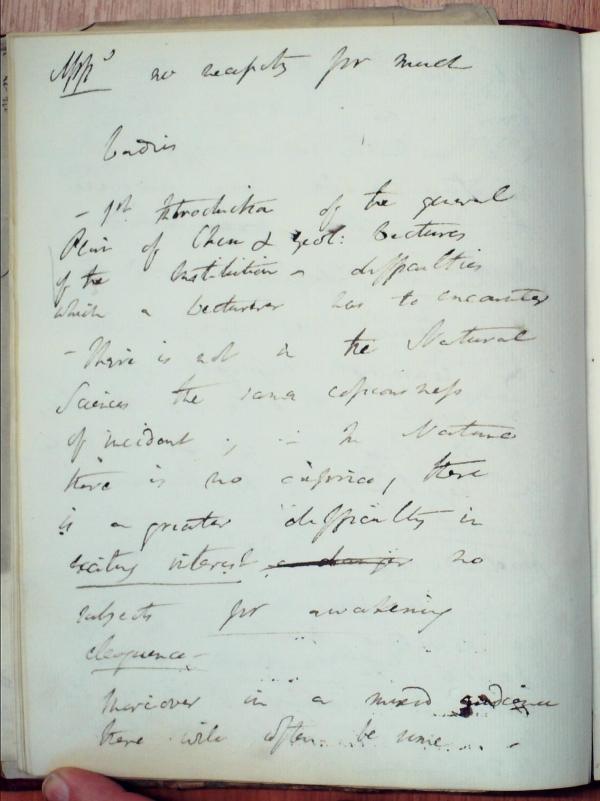 App.s no necessity for much
ladies
- 1st. Introduction of the general
Plan of Chem & Geol: Lectures
of the Institution - difficulties
which a Lecturer has to encounter
- There is not in the Natural
Sciences the same copiousness
of incident; - In Nature
there is no caprice, there
is a greater difficulty in
exciting interest a danger no
subjects for awakening
eloquence -
Moreover in a mixed audience
there will often be some